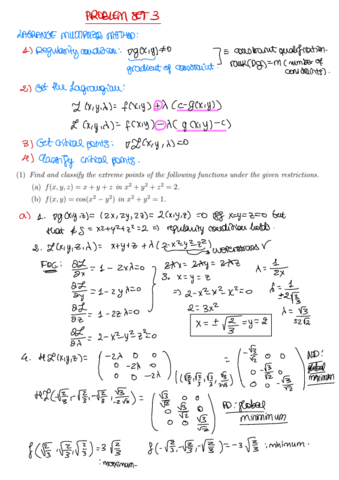 PROBLEM SET 3
LAGRANGE MULTIPLIER METHOD:
1) Regularity condition: ∇g(x,y)≠0 ≡ constraint qualification
gradient of constraint rank(Dg)=m (number of constraints).
2) Get the Lagrangian:
L(x,y,λ) = f(x,y) + λ(c-g(x,y))
L(x,y,λ) = f(x,y) - λ(g(x,y)-c)
3) Get critical points: ∇L(x,y,λ)=0
4) Classify critical points.
(1) Find and classify the extreme points of the following functions under the given restrictions.
(a) f(x, y, z) = x + y + z in x² + y² + z² = 2.
(b) f(x, y) = cos(x² − y²) in x² + y² = 1.
a) 1. ∇g(x,y,z)= (2x,2y,2z)= 2(x,y,z)=0 x=y=z=0 but
that ∉ S = x²+y²+z²=2 ⇒ regularity condition holds.
2. L(x,y,z,λ)= x+y+z+λ(2-x²-y²-z²)
FOC: ∂L/∂x = 1-2xλ=0
∂L/∂y = 1-2yλ=0
∂L/∂z = 1-2zλ=0
∂L/∂λ = 2-x²-y²-z²=0
2λx = 2λy = 2λz
3. x=y=z
⇒ 2-x²-x²-x²=0
2=3x²
x = ±√(2/3) = y = z
λ = 1/2x
4. HL(x,y,z)= (-2λ 0 0
0 -2λ 0
0 0 -2λ)
ND: global maximum
PD: global minimum
f(√(2/3), √(2/3), √(2/3)) = 3√(2/3) : maximum.
f(-√(2/3), -√(2/3), -√(2/3)) = -3√(2/3) : minimum.